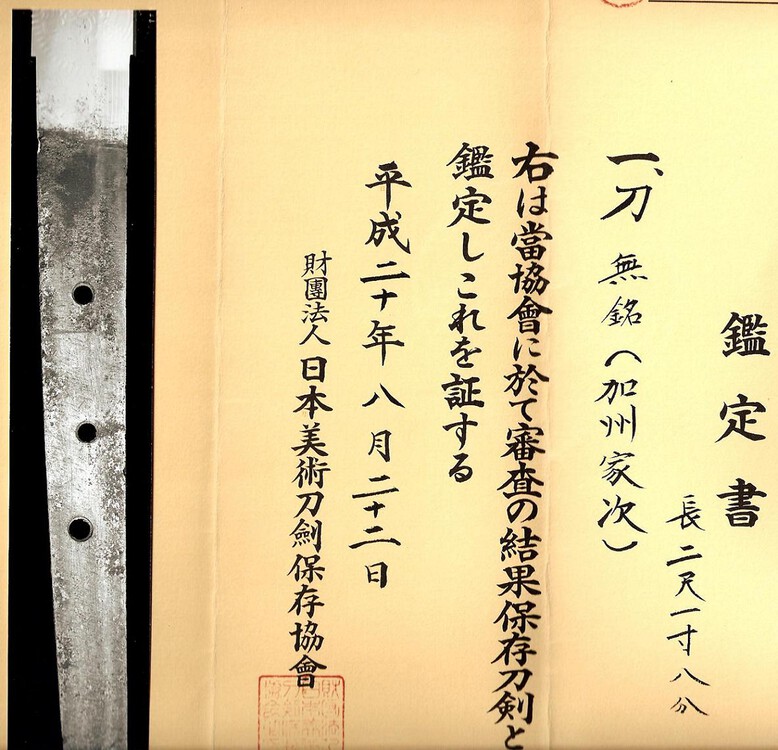 鑑定書
一、刀 無銘（加州家次）
長二尺一寸八分
右は當協會に於て審査の結果保存刀剣と
鑑定しこれを証する
平成二十年八月二十二日
財團法人日本美術刀劍保存協會